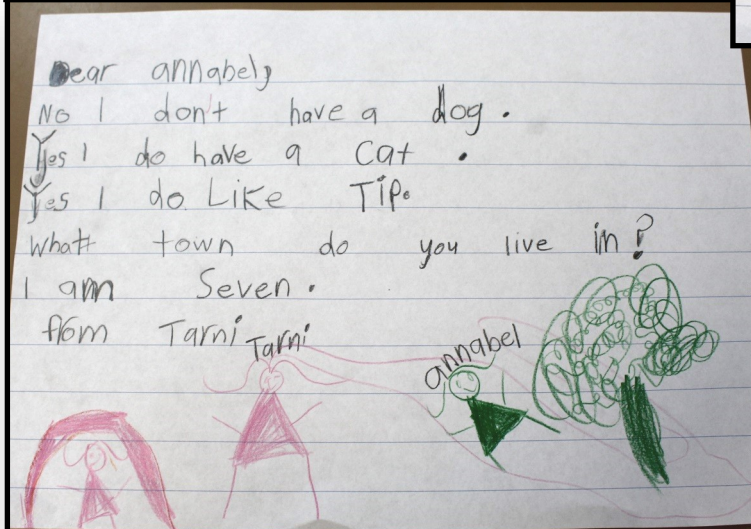 Dear annabel,
No I don't have a dog.
Yes I do have a cat.
Yes I do Like Tip.
What town do you live in?
I am Seven.
from Tarni
Tarni
annabel